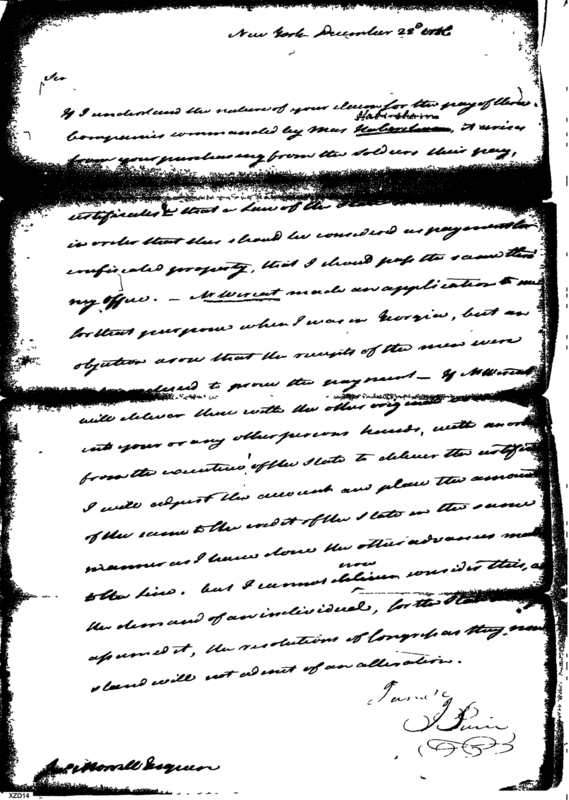 New York December 22d 1786
Sir
If I understand the nature of your claim for the pay of three
Companies commanded by Maj Habersham, it arises
from your purchasing from the Soldiers their pay,
certificates that a Law of the State
in order that this should be considered as payment for
confiscated property, that I should pass the same thro
my office. — Mr Wereat made an application to me
for that purpose when I was in Georgia, but an
objection arose that the receipts of the men were
to prove the payment — If Mr Wereat
will deliver these with the other original
into your or any other persons hands, with an order
from the executive of the State to deliver the certificates
I will adjust the account and place the amount
of the same to the credit of the State in the same
manner as I have done the other advances made
to the Line. but I cannot now consider this, as
the demand of an individual, for the State having
assumed it, the resolutions of Congress as they now
stand will not admit of an alteration.
I am &c
J Pierce
Esquire
XZD14